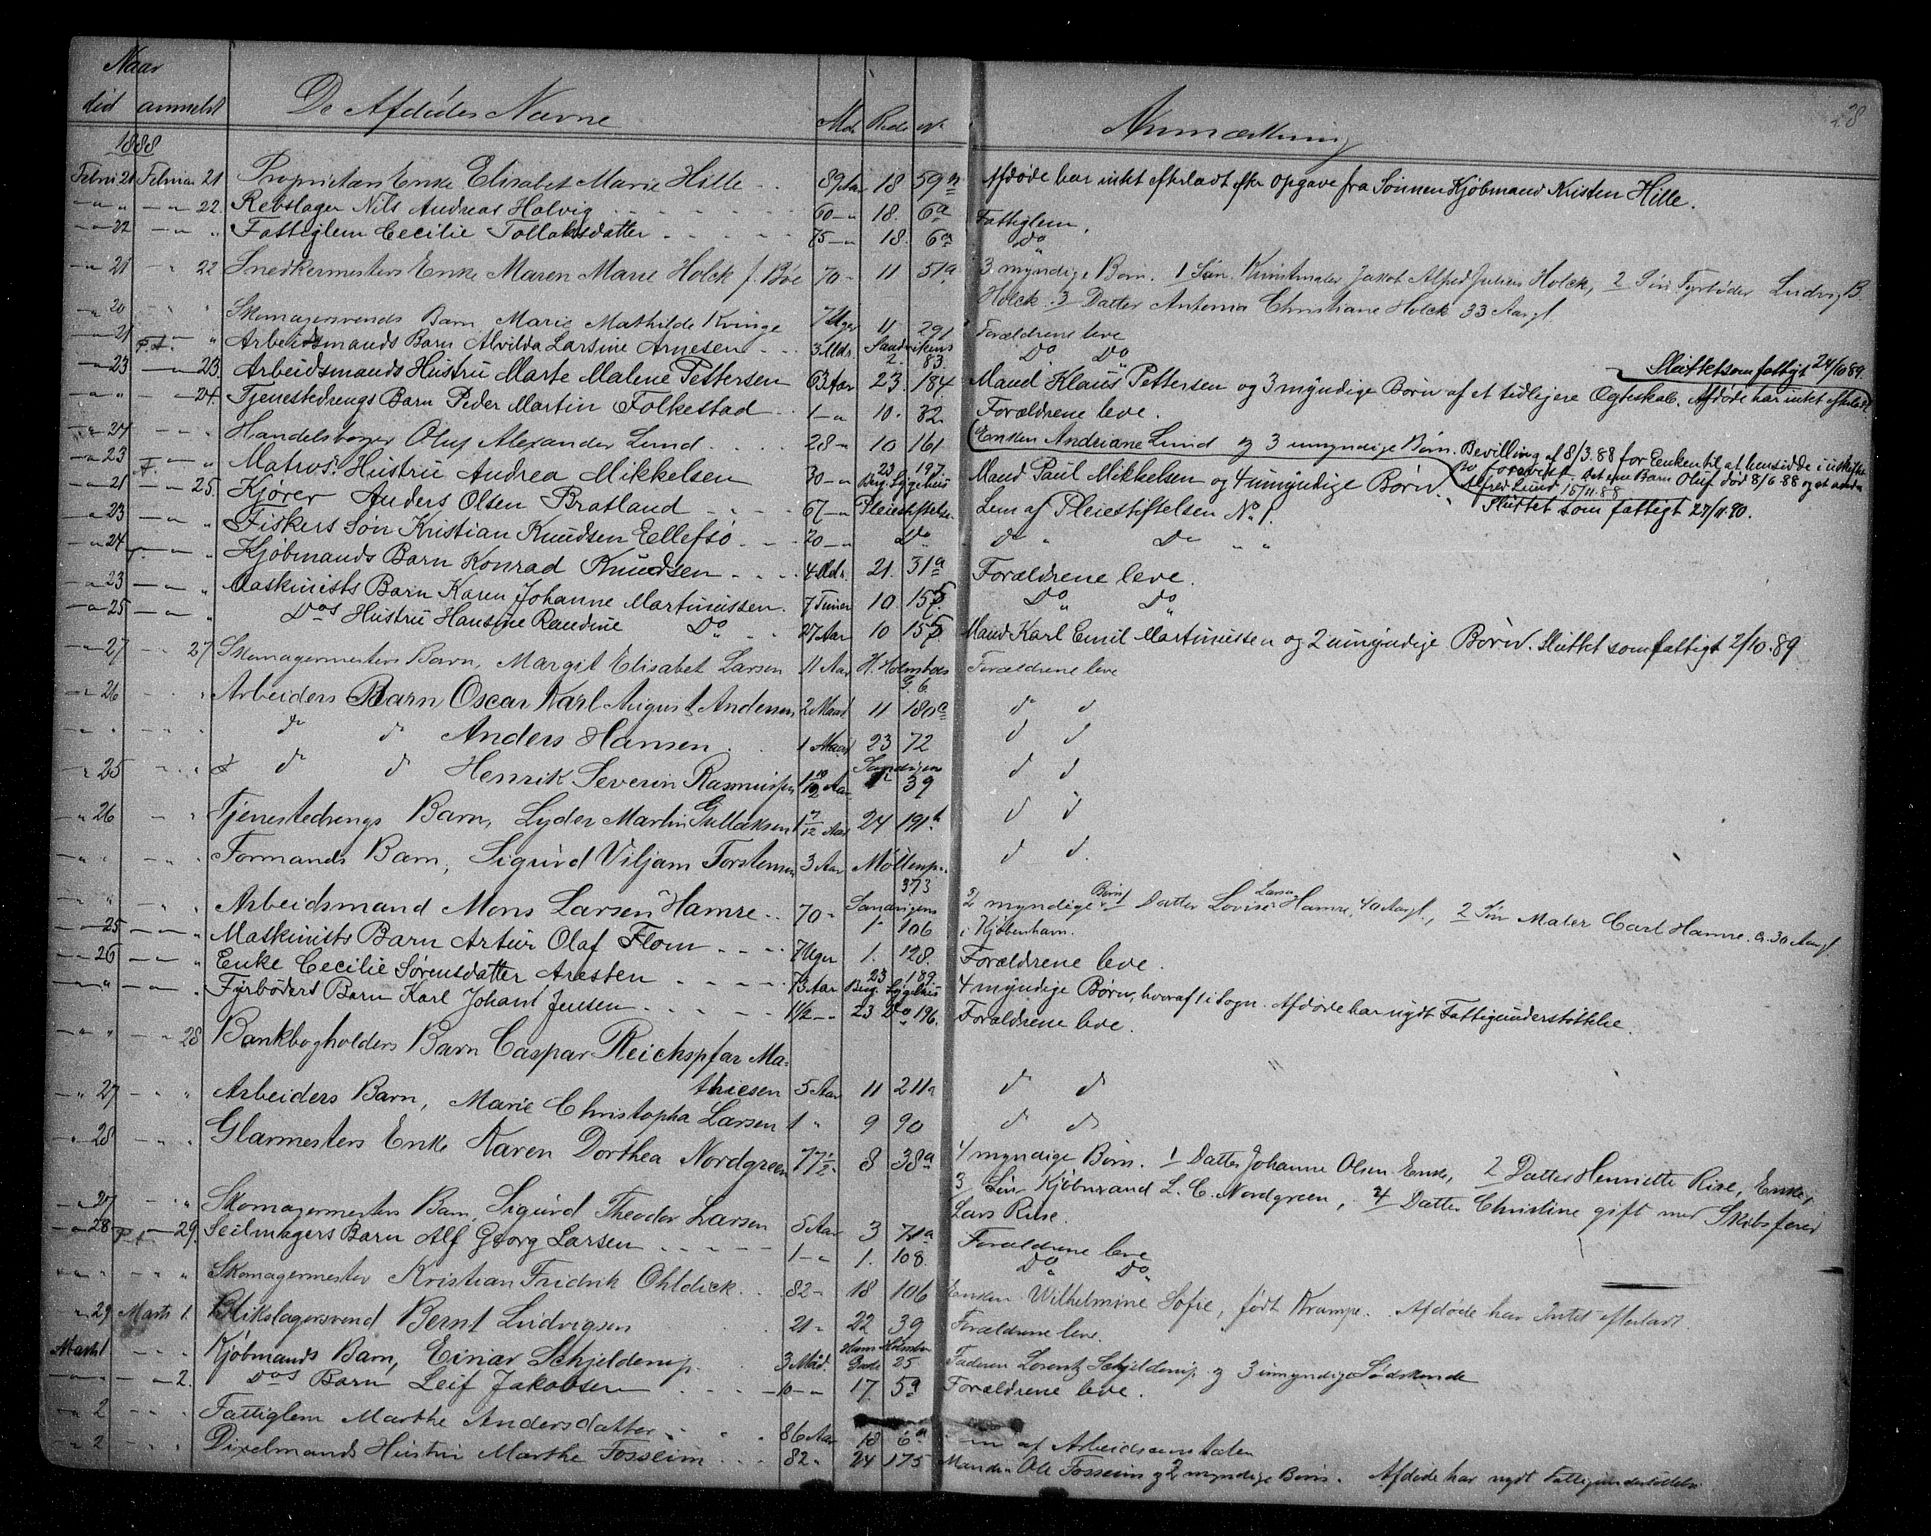 Naar
død anmeldt De Afdødes Navne Rode No Anmærkning 28
1888
Februar 21 Februar 21 Proprietærs Enke Elisabet Marie Hille 89 Aar 18 59 Afdøde har intet efterladt efter Opgave fra Sønnen Kjøbmand Kristen Hille.
" " 22. Rebslager Nils Andreas Holvig 60 " 18. 6a Fattiglem.
" 22 " " Fattiglem Cecilie Tollaksdatter 75 " 18. 6a Do
" 21 " 22 Snedkermesters Enke Maren Marie Holck f. Bøe 70 " 11 51a 3 myndige Børn. 1 Søn Kunstmaler Jakob Alfred Julius Holck, 2 Søn Fyrbøder Ludvig B.
Holck. 3 Datter Antonia Christiane Holck 33 Aargl.
" 20 " " Skomagersvends Barn Marie Mathilde Kvinge 7 Uger 11 291 Forældrene leve
" 21 p.t. " Arbeidsmands Barn Alvilda Larsine Arnesen 3 Mdr. Sandvikens 2. 83. Do Do
Sluttet som fattigt 24/10 89
" 23 " 23. Arbeidsmands Hustru Marte Malene Pettersen 63 Aar 23. 184. Mand Klaus Pettersen og 3 myndige Børn af et tidligere Ægteskab. Afdøde har intet efterladt
" " 24. Tjenestedrengs Barn Peder Martin Folkestad 1 " 10. 32. Forældrene leve.
" 24 " " Handelsborger Oluf Alexander Lund 28 " 10 161 Enken Andriane Lund og 3 umyndige Børn. Bevilling af 8/3.88 for Enken til at hensidde i uskiftet
Bo forevist. Det ene Barn Oluf død 8/6 88 og et andet
Alfred Lund 15/11.88
" 23 " " Matros. Hustru Andrea Mikkelsen 30 " 23 197. Berg. Sygehus Mand Paul Mikkelsen og 4 umyndige Børn. Sluttet som fattigt 27/11.90.
" 21 " 25. Kjører Anders Olsen Bratland 67 " Pleiestiftelse Lem af Pleiestiftelsen No 1.
" 23 " " Fiskers Søn Kristian Knudsen Ellefsø 20 " Do Do " Do " "
" 24 " Kjøbmands Barn Konrad Knudsen 4 Mdr. 21. 31a Forældrene leve.
" 23 " " Maskinists Barn Karen Johanne Martinussen. 7 Timer 10 155 Do " Do "
" 25 " " Dos Hustru Hansine Randine Do 27 Aar 10 155 Mand Karl Emil Martinussen og 2 umyndige Børn. Sluttet som fattigt 2/10.89
" 27 " 27 Skomagermesters Barn, Margit Elisabet Larsen 11 Aar H. Holmboes G. 6. Forældrene leve
" 26 " " Arbeiders Barn Oscar Karl August Andersen 2 Maand 11 180a d d
" " " d d Anders Hansen 1 Maand 23 72 d d
" 25 " " d d Henrik Severin Rasmussen 1 10/12 Aar Sandvigen 39 d d
" 26 " " Tjenestedrengs Barn, Lyder Martin Gullaksen 1 7/12 Aar 24 191b d d
" " " Formands Barn, Sigurd Viljam Torstensen 3 Aar Møllenpr. 373 d d.
" " " Arbeidsmand Mons Larsen Hamre 70 " Sandvigens 1 106 2 myndige Børn 1 Datter Lovise Larsen Hamre, 40 Aargl., 2 Søn Maler Carl Hamre. c. 30 Aargl.
i Kjøbenhavn.
" 25 " " Maskinists Barn Artur Olaf Flom 7 Uger 1. 128. Forældrene leve.
" 26 " " Enke Cecilie Sørensdatter Aresten 73 Aar 23 189 Berg. Sygehus 4 myndige Børn, hvoraf 1 i Sogn. Afdøde har nydt Fattigunderstøttelse.
" " " Fyrbøders Barn Karl Johant Jensen 1 1/2 " 23 Do 196. Forældrene leve.
" " 28 Bankbogholders Barn Caspar Reichspfar Ma-
thiesen 5 Aar 11 211a d d
" 27 " " Arbeiders Barn, Marie Christopha Larsen 1 " 9 90 d d
" 28 " " Glarmesters Enke Karen Dorthea Nordgreen 77 1/2 8 38a 4 myndige Børn. 1 Datter Johanne Olsen Enke, 2 Datter Henriette Rise, Enke,
3 Søn Kjøbmand L. C. Nordgreen, 4 Datter Christine gift med Skibsfører
Lars Rise.
" 27 " " Skomagermesters Barn, Sigurd Theodor Larsen 5 Aar 3 71a Forældrene leve
" 28 p.t. 29. Seilmagers Barn Alf Georg Larsen 1 " 1. 108. Do Do
" " " Skomagermester Kristian Fridrik Ohldick 82 " 18 106 Enken Wilhelmine Sofie, født Krampe. Afdøde har Intet efterladt.
" 29 Marts 1. Blikslagersvend Bernt Ludvigsen 21 " 22 39 Forældrene leve.
Marts 1 " " Kjøbmands Barn, Einar Schjelderup 3 Mdr. 25 Faderen Lorentz Schjelderup og 3 umyndige Sødskende
" " 2. Dos Barn Leif Jakobsen 10 " 17. 59 Forældrene leve.
" 2 " " Fattiglem Marthe Andersdatter 86 Aar 18 6a af Arbeidsanstalten
" 2 " " Dixelmands Hustru Marthe Fosseim 82 " 24 175 Manden Ole Fosseim og 2 myndige Børn. Afdøde har nydt Fattigunderstøttelse